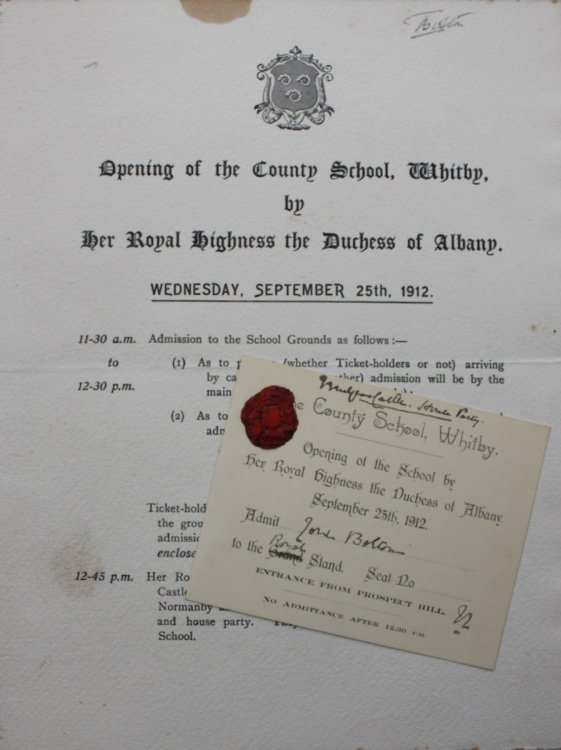 Bolton
Opening of the County School, Whitby,
by
Her Royal Highness the Duchess of Albany.
WEDNESDAY, SEPTEMBER 25th, 1912.
11-30 a.m. Admission to the School Grounds as follows:—
to (1) As to (whether Ticket-holders or not) arriving
12-30 p.m. by admission will be by the
main
(2) As to
Ticket-hold
the
admissio
enclose
12-45 p.m. Her Ro
Castle
Normanby
and house party.
School.
Mulgrave Castle. House Party.
The County School, Whitby.
Opening of the School by
Her Royal Highness the Duchess of Albany
September 25th, 1912.
Admit Lord Bolton
Royal
to the Grand Stand. Seat No 22
ENTRANCE FROM PROSPECT HILL.
NO ADMITTANCE AFTER 12.30 P.M.